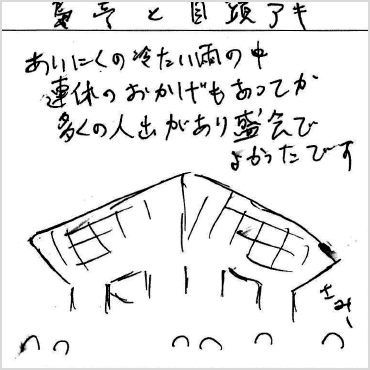 と目頭アキ
あいにくの冷たい雨の中
連休のおかげもあってか
多くの人出があり盛会で
よかったです
さみー